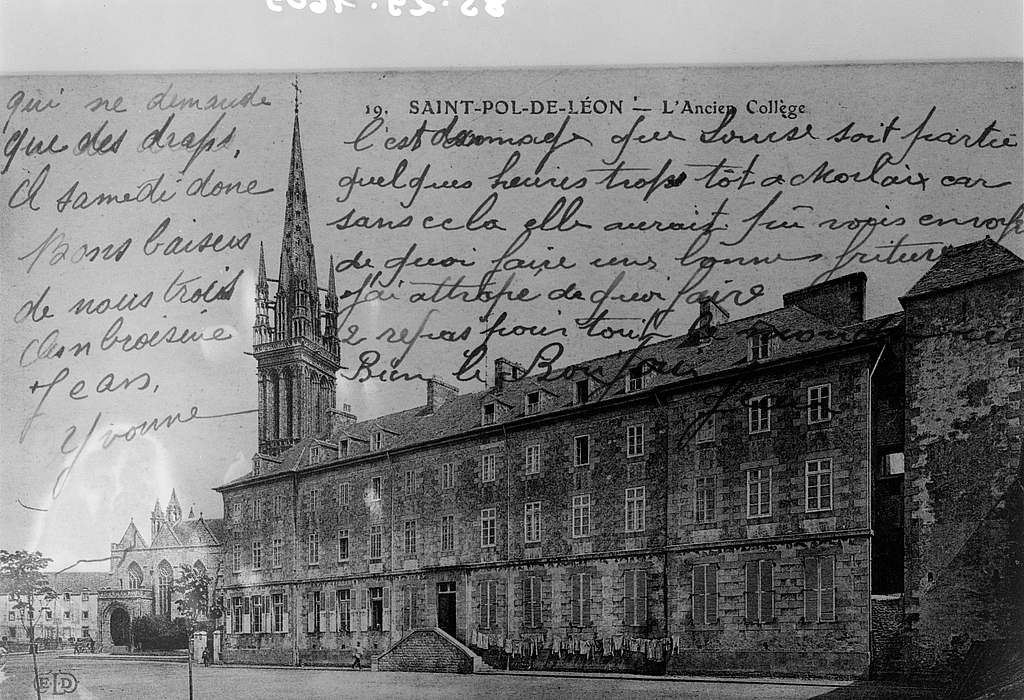 19. SAINT-POL-DE-LÉON — L'Ancien Collège
qui ne demande
que des draps,
samedi donc
Bons baisers
de nous trois
Jean,
Yvonne
c'est dommage que Louise soit partie
quelques heures trop tôt a Morlaix car
sans cela elle aurait pu vous envoyer
de quoi faire une bonne friture
J'ai attrapé de quoi faire
2 repas pour tout le monde
Bien le Bonjour
ELD